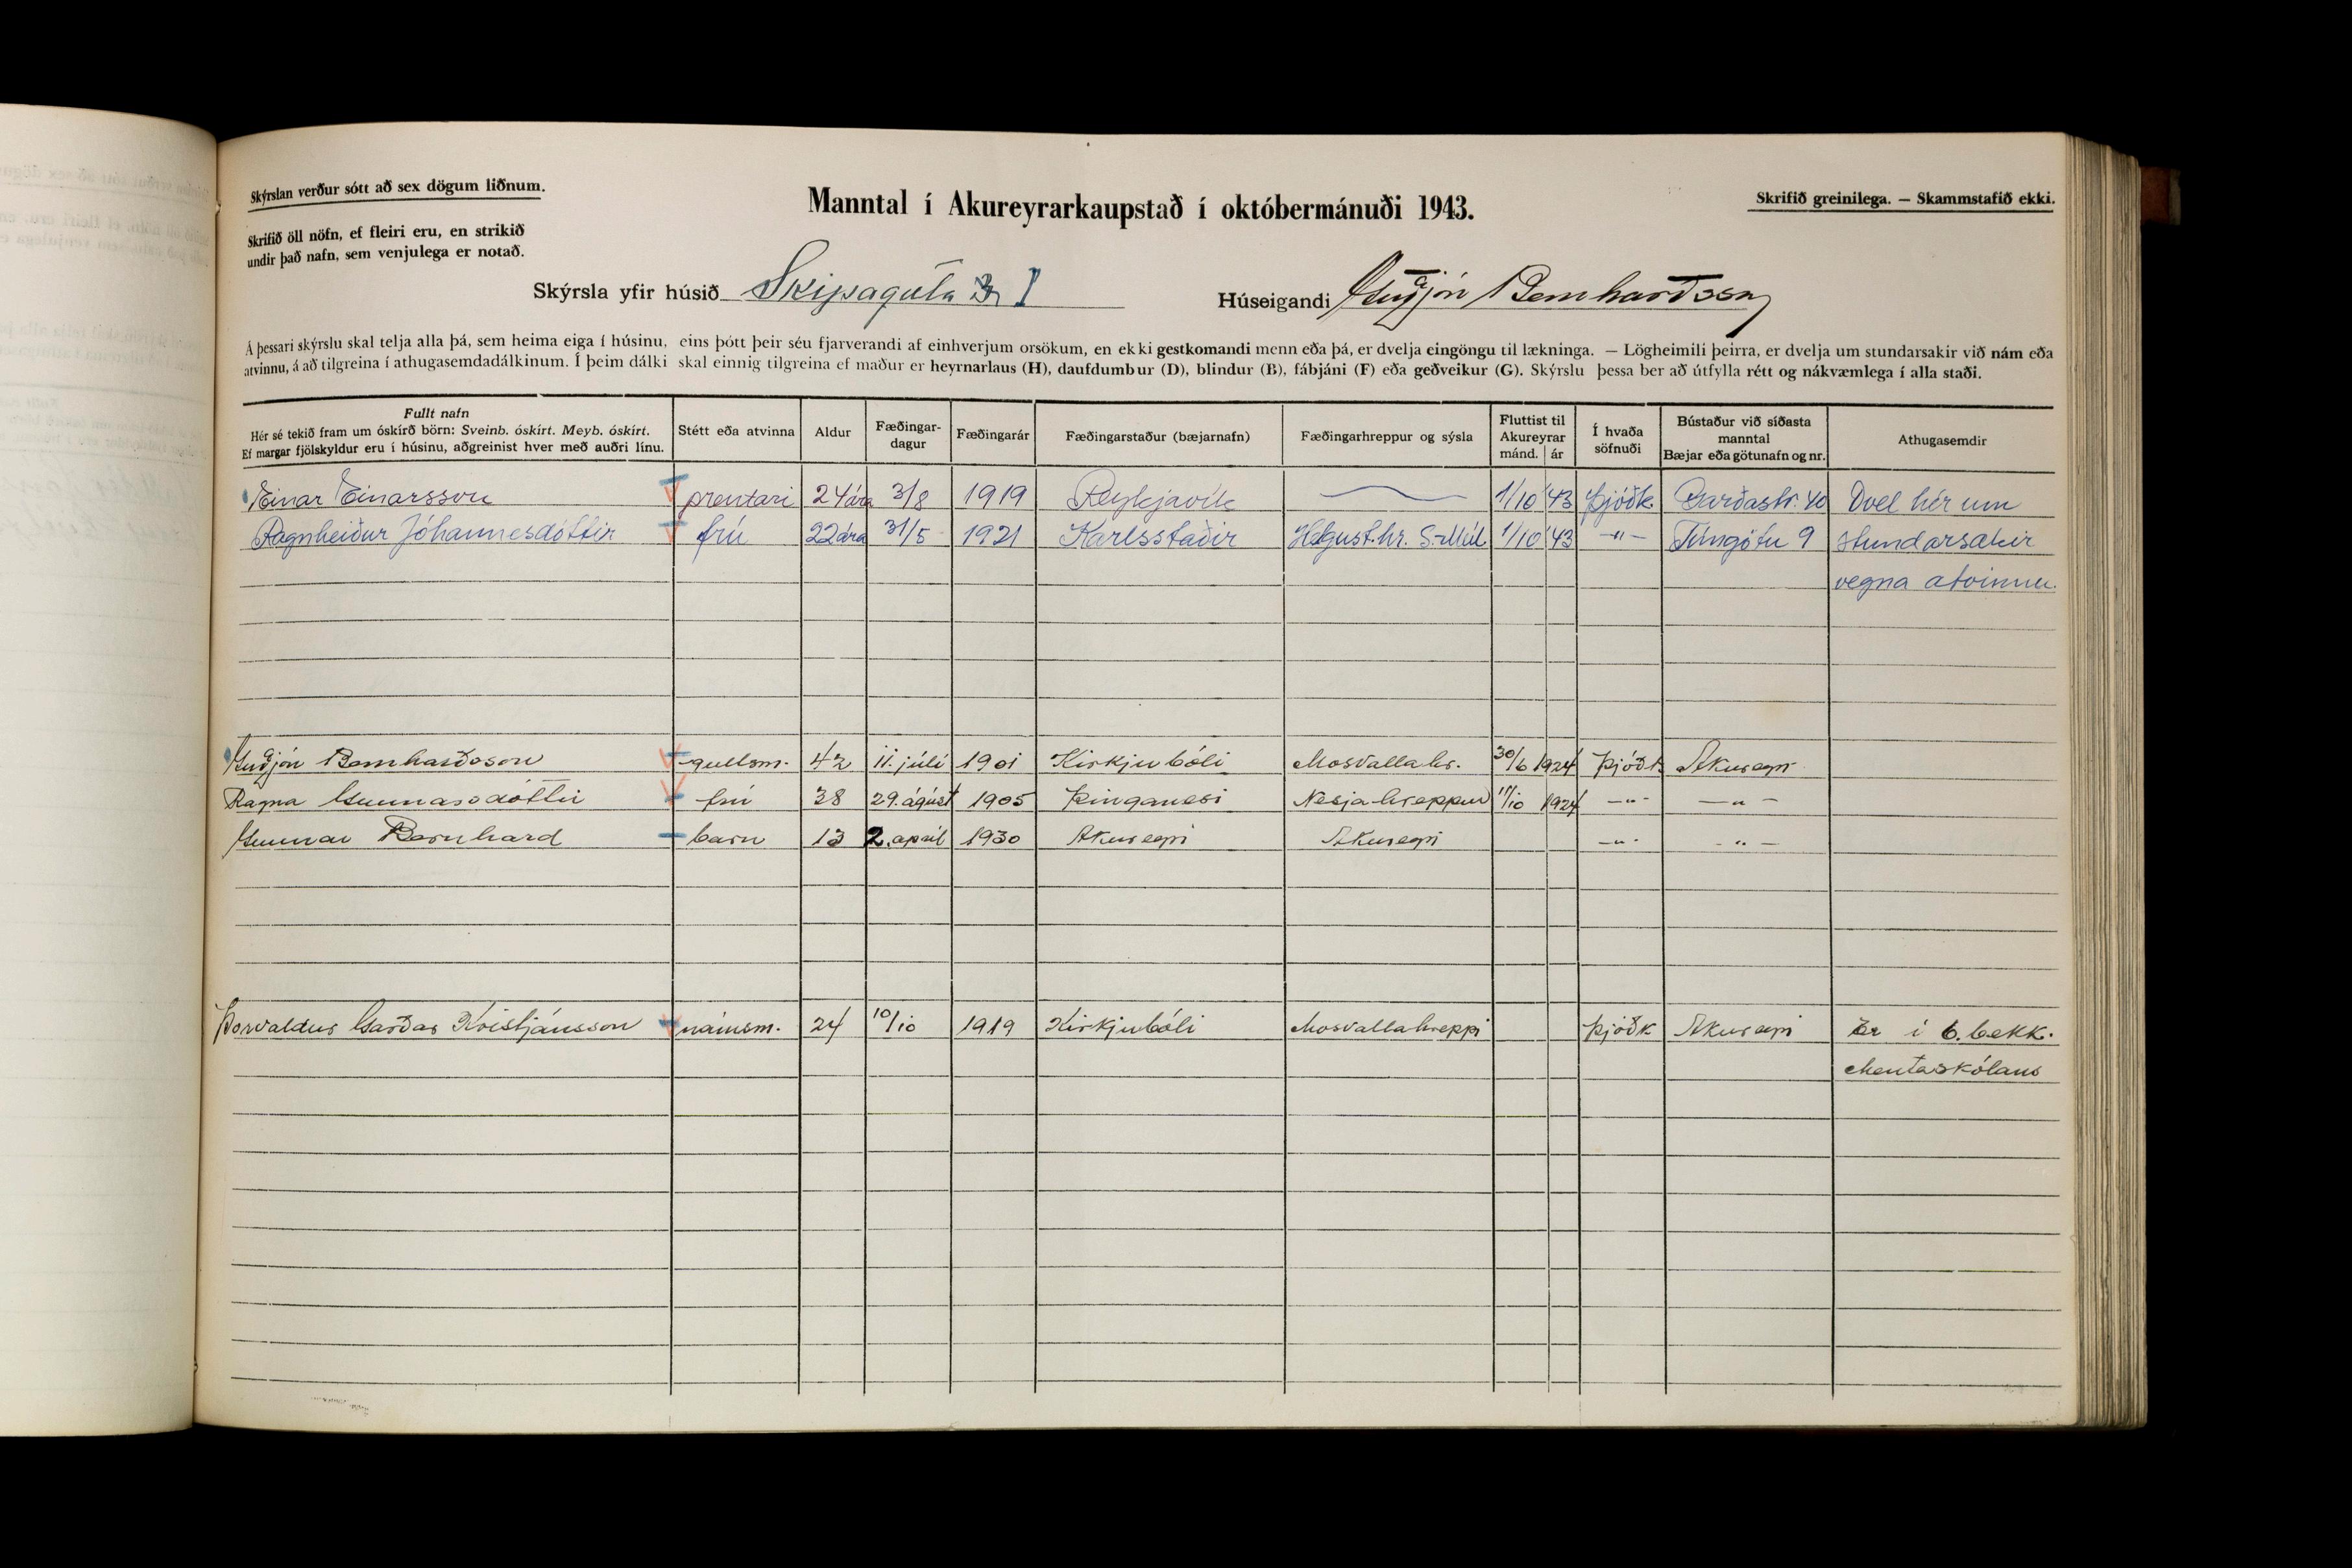 Skýrslan verður sótt að sex dögum liðnum.
Skrifið öll nöfn, ef fleiri eru, en strikið
undir það nafn, sem venjulega er notað.
Manntal í Akureyrarkaupstað í októbermánuði 1943.
Skrifið greinilega. — Skammstafið ekki.
Skýrsla yfir húsið Skipagata I Húseigandi Guðjón Bernharðsson
Á þessari skýrslu skal telja alla þá, sem heima eiga í húsinu, eins þótt þeir séu fjarverandi af einhverjum orsökum, en ekki gestkomandi menn eða þá, er dvelja eingöngu til lækninga. — Lögheimili þeirra, er dvelja um stundarsakir við nám eða
atvinnu, á að tilgreina í athugasemdadálkinum. Í þeim dálki skal einnig tilgreina ef maður er heyrnarlaus (H), daufdumbur (D), blindur (B), fábjáni (F) eða geðveikur (G). Skýrslu þessa ber að útfylla rétt og nákvæmlega í alla staði.
Fullt nafn
Hér sé tekið fram um óskírð börn: Sveinb. óskírt. Meyb. óskírt.
Ef margar fjölskyldur eru í húsinu, aðgreinist hver með auðri línu.
Stétt eða atvinna
Aldur
Fæðingar-
dagur
Fæðingarár
Fæðingarstaður (bæjarnafn)
Fæðingarhreppur og sýsla
Fluttist til
Akureyrar
mánd. ár
Í hvaða
söfnuði
Bústaður við síðasta
manntal
Bæjar eða götunafn og nr.
Athugasemdir
Einar Einarsson prentari 24 ára 3/8 1919 Reykjavík 1/10 '43 Þjóðk. Garðastr. 40 Dvel hér um
Ragnheiður Jóhannesdóttir frú 22 ára 31/5 1921 Karlsstaðir Helgust.hr. S-Múl 1/10 '43 -"- Túngötu 9 stundarsakir
vegna atvinnu.
Guðjón Bernharðsson gullsm. 42 11. júlí 1901 Kirkjubóli Mosvallahr. 30/6 1924 Þjóðk Akureyri
Ragna Gunnarsdóttir frú 38 29. ágúst 1905 Þinganesi Nesja-hreppur 11/10 1924 -"- -"-
Gunnar Bernhard barn 13 2. apríl 1930 Akureyri Akureyri -"- -"-
Þorvaldur Garðar Kristjánsson námsm. 24 10/10 1919 Kirkjubóli Mosvallahreppi Þjóðk Akureyri Er í 6. bekk.
Mentaskólans